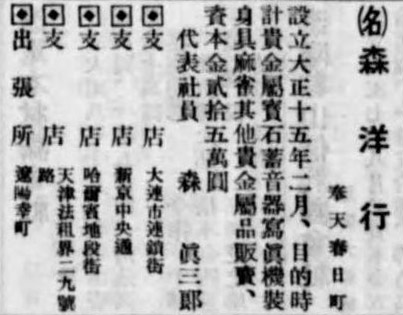 ㈴森洋行
奉天春日町
設立大正十五年二月、目的時
計貴金屬寶石蓄音器寫眞機裝
身具麻雀其他貴金屬品販賣、
資本金貳拾五萬圓
代表社員 森眞三郎
支店 大連市連鎖街
支店 新京中央通
支店 哈爾賓地段街
支店 天津法租界二九號
路
出張所 遼陽幸町